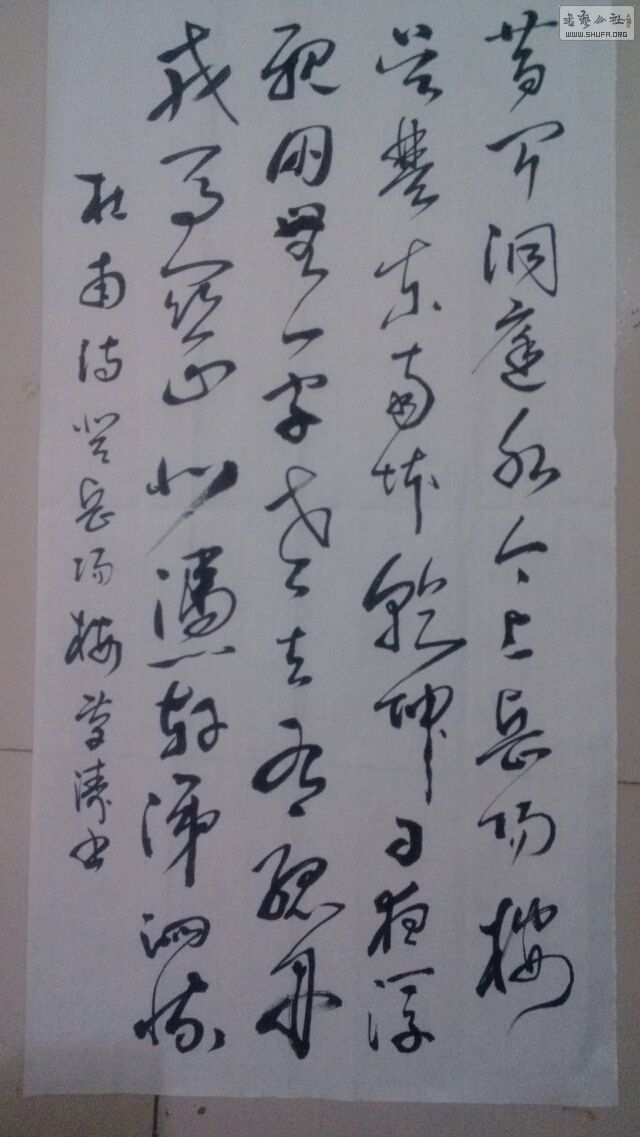 書藝公社
WWW.SHUFA.ORG
昔聞洞庭水今上岳陽樓
吳楚東南坼乾坤日夜浮
親朋無一字老去有孤舟
戎馬關山北憑軒涕泗流
杜甫詩登岳陽樓 濤書